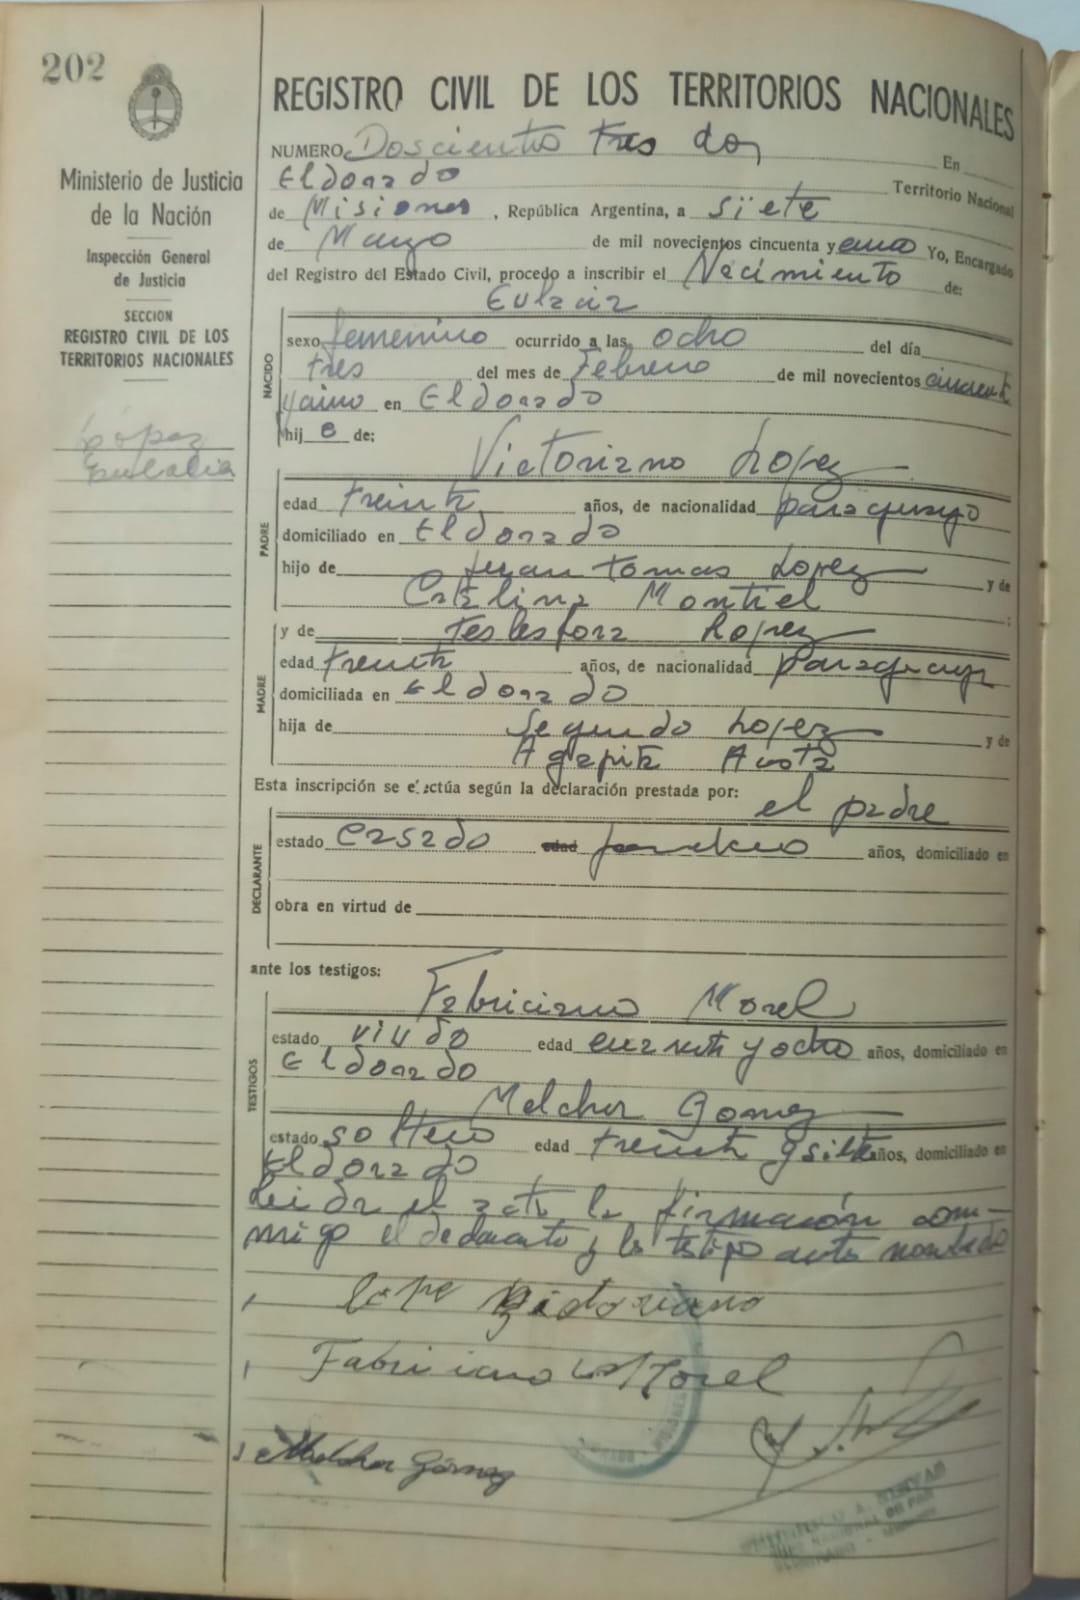 202
REGISTRO CIVIL DE LOS TERRITORIOS NACIONALES
Ministerio de Justicia
de la Nación
Inspección General
de Justicia
SECCION
REGISTRO CIVIL DE LOS
TERRITORIOS NACIONALES
López
Eulalia
NUMERO Doscientos tres dos En
Eldorado Territorio Nacional
de Misiones, República Argentina, a siete
de Marzo de mil novecientos cincuenta y uno Yo, Encargado
del Registro del Estado Civil, procedo a inscribir el Nacimiento de:
NACIDO
sexo femenino ocurrido a las ocho del día
tres del mes de Febrero de mil novecientos cincuenta
y uno en Eldorado
hij e de:
Victoriano Lopez
PADRE
edad treinta años, de nacionalidad paraguayo
domiciliado en Eldorado
hijo de Juan tomas Lopez y de
Catalina Montiel ;
MADRE
y de Teslesfora Lopez
edad treinta años, de nacionalidad paraguaya
domiciliada en Eldorado
hija de Segundo Lopez y de
Agapita Acosta
Esta inscripción se efectúa según la declaración prestada por:
el padre
DECLARANTE
estado casado edad años, domiciliado en
obra en virtud de
ante los testigos:
TESTIGOS
Fabriciano Morel
estado viudo edad cuarenta y ocho años, domiciliado en
Eldorado
Melchor Gomez
estado soltero edad treinta y siete años, domiciliado en
Eldorado
Leida el acta la firmarón con-
migo el declarante y los testigos antes nombrado
Lope Victoriano
Fabriciano Morel
Melchor Gómez